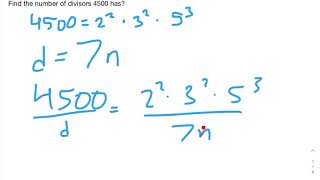 Find the number of divisors 4500 has?
4500 = 2² · 3² · 5³
d = 7n
4500/d = 2² · 3² · 5³/7n